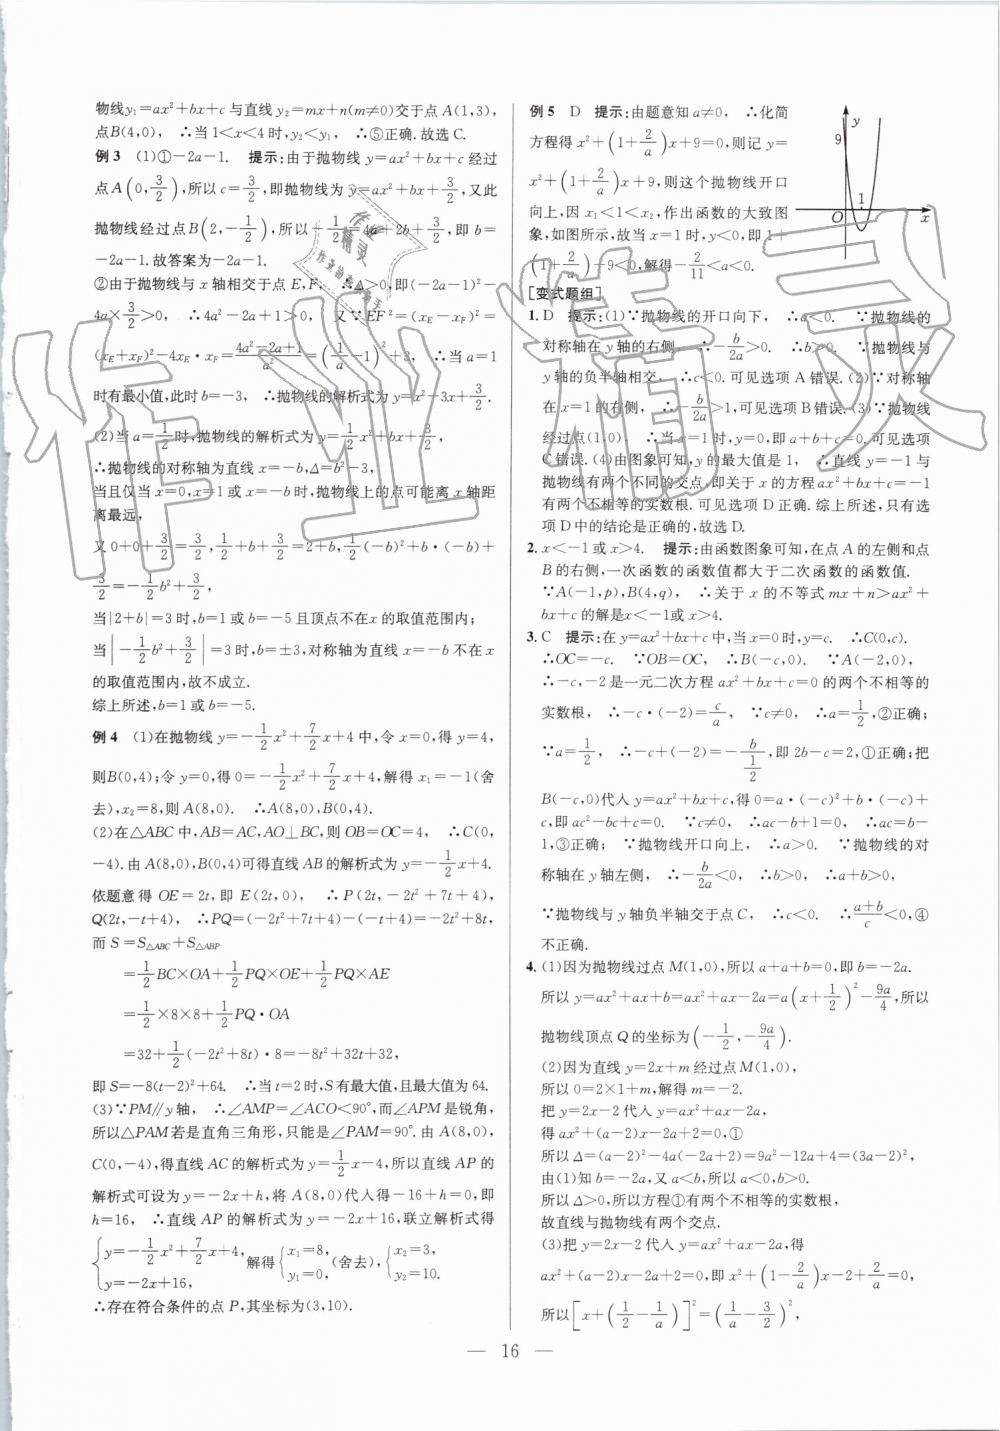 物线y₁=ax²+bx+c与直线y₂=mx+n(m≠0)交于点A(1,3),
点B(4,0), ∴当1<x<4时,y₂<y₁, ∴⑤正确.故选C.
例3 (1)①-2a-1. 提示:由于抛物线y=ax²+bx+c经过
点A(0,3/2),所以c=3/2,即抛物线为y=ax²+bx+3/2,又此
抛物线经过点B(2,-1/2),所以-1/2=4a+2b+3/2,即b=
-2a-1.故答案为-2a-1.
②由于抛物线与x轴相交于点E,F, ∴Δ>0,即(-2a-1)²-
4a×3/2>0, ∴4a²-2a+1>0, 又∵EF²=(x_E-x_F)²=
(x_E+x_F)²-4x_E·x_F=(4a²-2a+1)/a²=(1/a-1)²+3, ∴当a=1
时有最小值,此时b=-3, ∴抛物线的解析式为y=x²-3x+3/2.
(2)当a=1/2时,抛物线的解析式为y=1/2x²+bx+3/2,
∴抛物线的对称轴为直线x=-b,Δ=b²-3,
当且仅当x=0,x=1或x=-b时,抛物线上的点可能离x轴距
离最远,
又0+0+3/2=3/2,1/2+b+3/2=2+b,1/2(-b)²+b·(-b)+
3/2=-1/2b²+3/2,
当|2+b|=3时,b=1或b=-5且顶点不在x的取值范围内;
当|-1/2b²+3/2|=3时,b=±3,对称轴为直线x=-b不在x
的取值范围内,故不成立.
综上所述,b=1或b=-5.
例4 (1)在抛物线y=-1/2x²+7/2x+4中,令x=0,得y=4,
则B(0,4);令y=0,得0=-1/2x²+7/2x+4,解得x₁=-1(舍
去),x₂=8,则A(8,0). ∴A(8,0),B(0,4).
(2)在△ABC中,AB=AC,AO⊥BC,则OB=OC=4, ∴C(0,
-4).由A(8,0),B(0,4)可得直线AB的解析式为y=-1/2x+4.
依题意得OE=2t,即E(2t,0), ∴P(2t,-2t²+7t+4),
Q(2t,-t+4), ∴PQ=(-2t²+7t+4)-(-t+4)=-2t²+8t,
而S=S△ABC+S△ABP
=1/2BC×OA+1/2PQ×OE+1/2PQ×AE
=1/2×8×8+1/2PQ·OA
=32+1/2(-2t²+8t)·8=-8t²+32t+32,
即S=-8(t-2)²+64. ∴当t=2时,S有最大值,且最大值为64.
(3)∵PM∥y轴, ∴∠AMP=∠ACO<90°,而∠APM是锐角,
所以△PAM若是直角三角形,只能是∠PAM=90°.由A(8,0),
C(0,-4),得直线AC的解析式为y=1/2x-4,所以直线AP的
解析式可设为y=-2x+h,将A(8,0)代入得-16+h=0,即
h=16, ∴直线AP的解析式为y=-2x+16,联立解析式得
{y=-1/2x²+7/2x+4, y=-2x+16, 解得{x₁=8, y₁=0,(舍去),{x₂=3, y₂=10.
∴存在符合条件的点P,其坐标为(3,10).
例5 D 提示:由题意知a≠0, ∴化简
方程得x²+(1+2/a)x+9=0,则记y=
x²+(1+2/a)x+9,则这个抛物线开口
向上,因x₁<1<x₂,作出函数的大致图
象,如图所示,故当x=1时,y<0,即1+
(1+2/a)+9<0,解得-2/11<a<0.
y
9
1
O
x
[变式题组]
1. D 提示:(1)∵抛物线的开口向下, ∴a<0. ∵抛物线的
对称轴在y轴的右侧, ∴-b/2a>0. ∴b>0. ∵抛物线与
y轴的负半轴相交, ∴c<0.可见选项A错误.(2)∵对称轴
在x=1的右侧, ∴-b/2a>1,可见选项B错误.(3)∵抛物线
经过点(1,0). ∴当x=1时,y=0,即a+b+c=0.可见选项
C错误.(4)由图象可知,y的最大值是1, ∴直线y=-1与
抛物线有两个不同的交点,即关于x的方程ax²+bx+c=-1
有两个不相等的实数根.可见选项D正确.综上所述,只有选
项D中的结论是正确的,故选D.
2. x<-1或x>4. 提示:由函数图象可知,在点A的左侧和点
B的右侧,一次函数的函数值都大于二次函数的函数值.
∵A(-1,p),B(4,q), ∴关于x的不等式mx+n>ax²+
bx+c的解是x<-1或x>4.
3. C 提示:在y=ax²+bx+c中,当x=0时,y=c. ∴C(0,c).
∴OC=-c. ∵OB=OC, ∴B(-c,0). ∵A(-2,0),
∴-c,-2是一元二次方程ax²+bx+c=0的两个不相等的
实数根, ∴-c·(-2)=c/a, ∵c≠0, ∴a=1/2,②正确;
∵a=1/2, ∴-c+(-2)=-b/(1/2),即2b-c=2,①正确;把
B(-c,0)代入y=ax²+bx+c,得0=a·(-c)²+b·(-c)+
c,即ac²-bc+c=0. ∵c≠0, ∴ac-b+1=0, ∴ac=b-
1,③正确; ∵抛物线开口向上, ∴a>0. ∵抛物线的对
称轴在y轴左侧, ∴-b/2a<0, ∴b>0, ∴a+b>0,
∵抛物线与y轴负半轴交于点C, ∴c<0. ∴(a+b)/c<0,④
不正确.
4. (1)因为抛物线过点M(1,0),所以a+a+b=0,即b=-2a.
所以y=ax²+ax+b=ax²+ax-2a=a(x+1/2)²-9a/4,所以
抛物线顶点Q的坐标为(-1/2,-9a/4).
(2)因为直线y=2x+m经过点M(1,0),
所以0=2×1+m,解得m=-2.
把y=2x-2代入y=ax²+ax-2a,
得ax²+(a-2)x-2a+2=0,①
所以Δ=(a-2)²-4a(-2a+2)=9a²-12a+4=(3a-2)².
由(1)知b=-2a,又a<b,所以a<0,b>0.
所以Δ>0,所以方程①有两个不相等的实数根,
故直线与抛物线有两个交点.
(3)把y=2x-2代入y=ax²+ax-2a,得
ax²+(a-2)x-2a+2=0,即x²+(1-2/a)x-2+2/a=0,
所以[x+(1/2-1/a)]²=(1/a-3/2)²,
— 16 —
作业精灵